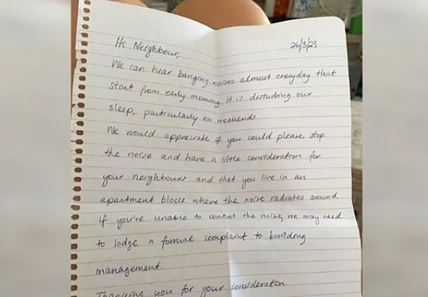 Hi Neighbour,
26/3/23
We can hear banging noises almost everyday that
start from early morning. It is disturbing our
sleep, particularly on weekends.
We would appreciate if you could please stop
the noise and have a little consideration for
your neighbours and that you live in an
apartment block where the noise radiates around
if you're unable to control the noise, we may need
to lodge a formal complaint to building
management.
Thanking you for your consideration